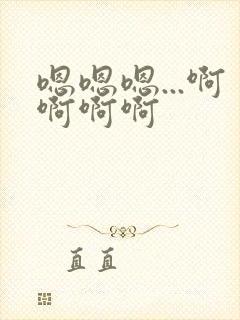 嗯嗯嗯...啊
啊啊啊
直直